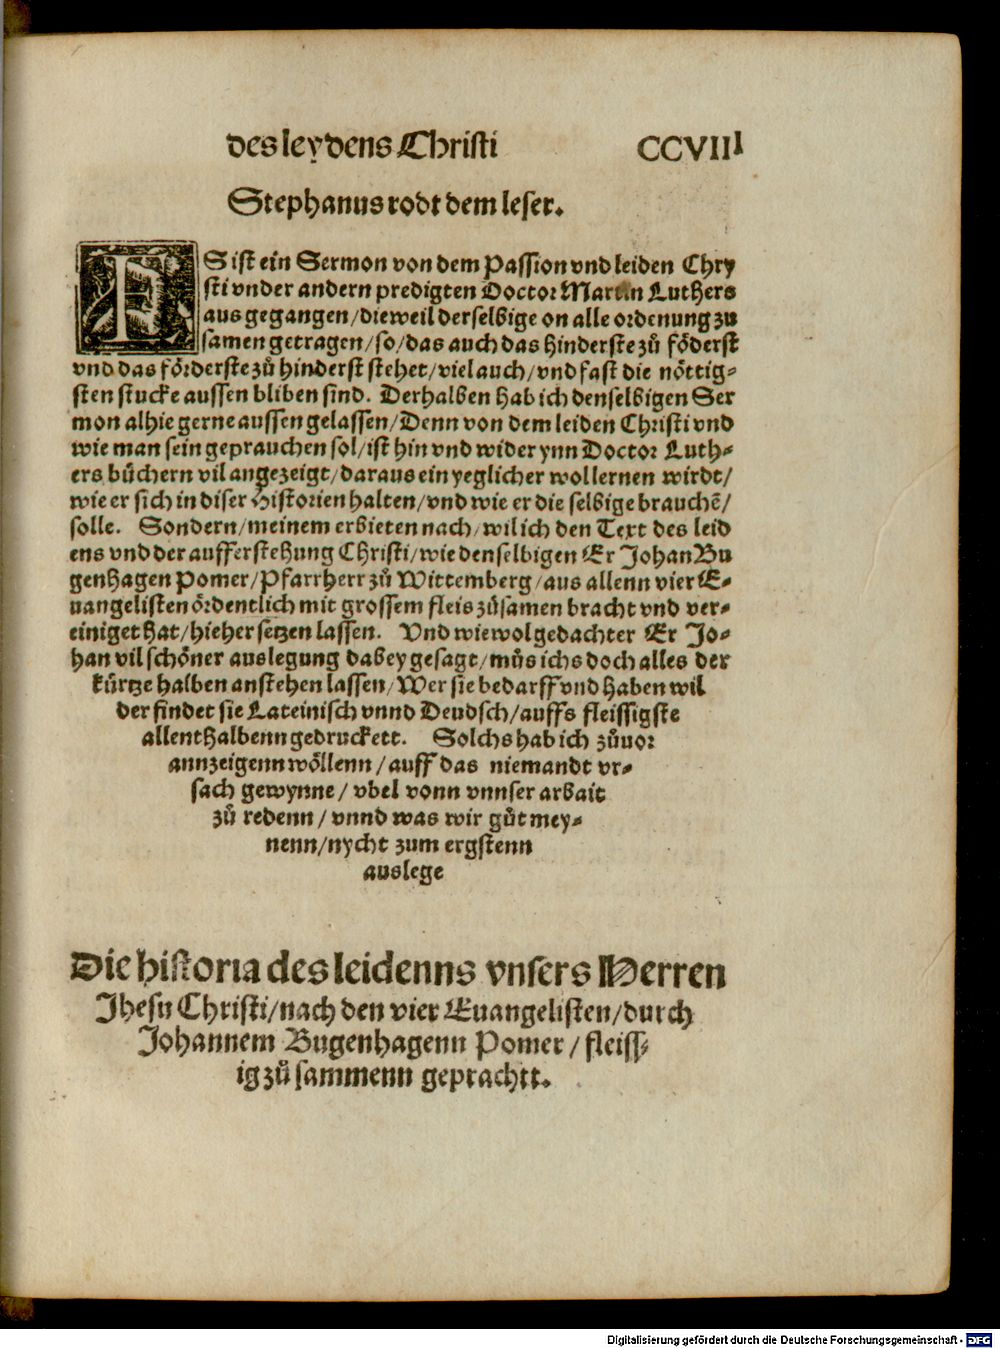 des leydens Christi CCVIII
Stephanus rodt dem leser.
ES ist ein Sermon von dem Passion vnd leiden Chry
sti vnder andern predigten Doctor Martin Luthers
aus gegangen/dieweil derselbige on alle ordenung zu
samen getragen/so/das auch das hinderste zů föderst
vnd das förderste zů hinderst stehet/viel auch/vnd fast die nöttig⸗
sten stucke aussen bliben sind. Derhalben hab ich denselbigen Ser
mon alhie gerne aussen gelassen/Denn von dem leiden Christi vnd
wie man sein geprauchen sol/ist hin vnd wider ynn Doctor Luth⸗
ers bůchern vil angezeigt/daraus ein yeglicher wol lernen wirdt/
wie er sich in diser Historien halten/vnd wie er die selbige brauchē/
solle. Sondern/meinem erbieten nach/wil ich den Text des leid
ens vnd der aufferstehung Christi/wie denselbigen Er Johan Bu
genhagen Pomer/Pfarrherr zů Wittemberg/aus allenn vier E⸗
uangelisten ördentlich mit grossem fleis zůsamen bracht vnd ver⸗
einiget hat/hieher setzen lassen. Vnd wiewol gedachter Er Jo⸗
han vil schöner auslegung dabey gesagt/můs ichs doch alles der
kürtze halben anstehen lassen/Wer sie bedarff vnd haben wil
der findet sie Lateinisch vnnd Deudsch/auffs fleissigste
allenthalbenn gedruckett. Solchs hab ich zůuor
annzeigenn wöllenn/auff das niemandt vr⸗
sach gewynne/vbel vonn vnnser arbait
zů redenn/vnnd was wir gůt mey⸗
nenn/nycht zum ergstenn
auslege
Die historia des leidenns vnsers Herren
Jhesu Christi/nach den vier Euangelisten/durch
Johannem Bugenhagenn Pomer/fleiss⸗
ig zů sammenn geprachtt.
Digitalisierung gefördert durch die Deutsche Forschungsgemeinschaft - DFG